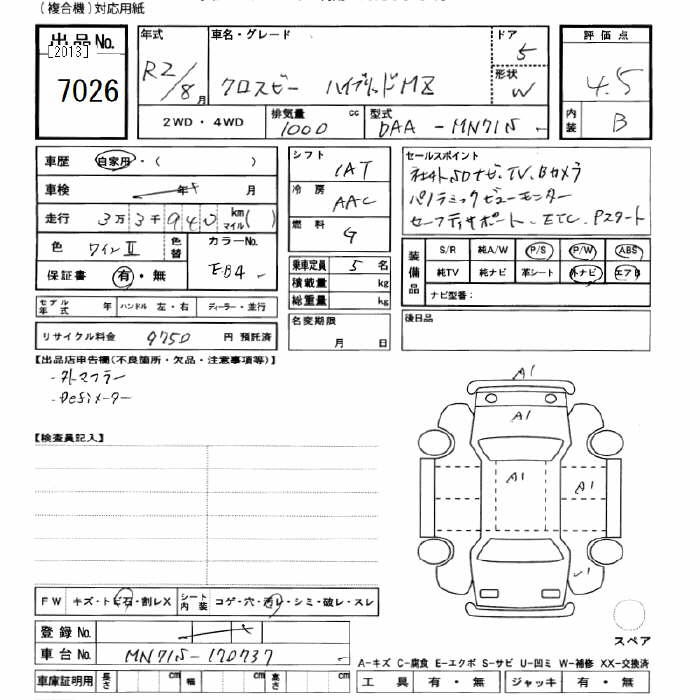 (複合機)対応用紙
出品No.
[2013]
7026
年式
R2/8月
車名・グレード
クロスビー ハイブリッドMZ
ドア
5
形状
W
評価点
4.5
内装
B
2WD・4WD
排気量 1000 cc
型式 DAA-MN71S
車歴 自家用・( )
車検 年 月
走行 3万3千940km マイル( )
色 ワインⅡ
色替
カラーNo. EB4
保証書 有・無
モデル年式 年 ハンドル 左・右 ディーラー・並行
リサイクル料金 9750 円 預託済
シフト IAT
冷房 AAC
燃料 G
乗車定員 5 名
積載量 kg
総重量 kg
名変期限
月 日
セールスポイント
社外SDナビ、TV、Bカメラ
パノラミックビューモニター
セーフティサポート、ETC、Pスタート
装備品
S/R 純A/W P/S P/W ABS
純TV 純ナビ 革シート 外ナビ エアB
ナビ型番:
後日品
【出品店申告欄(不良箇所・欠品・注意事項等)】
・外マフラー
・Defiメーター
【検査員記入】
A1
A1
A1
A1
スペア
FW キズ・トビ石・割レX シート内装 コゲ・穴・汚レ・シミ・破レ・スレ
登録No.
車台No. MN71S-170737
車庫証明用 長さ cm 幅 cm 高さ cm
A-キズ C-腐食 E-エクボ S-サビ U-凹ミ W-補修 XX-交換済
工具 有・無 ジャッキ 有・無